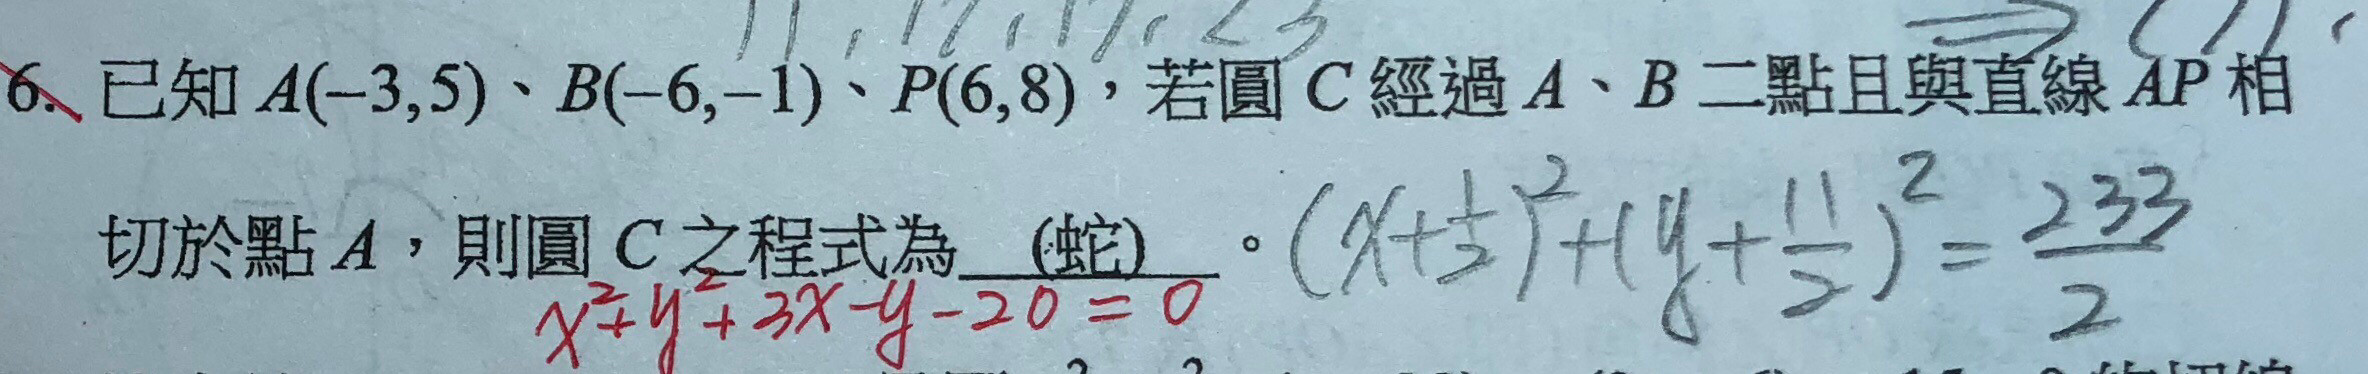 11, 17, 17, 23
6. 已知 A(−3,5)、B(−6,−1)、P(6,8)，若圓 C 經過 A、B 二點且與直線 AP 相
切於點 A，則圓 C 之程式為 (蛇) 。(x+1/2)²+(y+11/2)²=233/2
x²+y²+3x−y−20=0